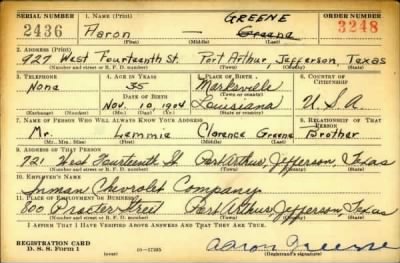 SERIAL NUMBER 1. NAME (Print) GREENE ORDER NUMBER
2436 Aaron — Greene 3248
(First) (Middle) (Last)
2. ADDRESS (Print)
927 West Fourteenth St. Port Arthur, Jefferson, Texas
(Number and street or R. F. D. number) (Town) (County) (State)
3. TELEPHONE 4. AGE IN YEARS 5. PLACE OF BIRTH 6. COUNTRY OF CITIZENSHIP
None 35 Marksville
DATE OF BIRTH (Town or county)
Nov. 10, 1904 Louisiana U.S.A
(Exchange) (Number) (Mo.) (Day) (Yr.) (State or country)
7. NAME OF PERSON WHO WILL ALWAYS KNOW YOUR ADDRESS 8. RELATIONSHIP OF THAT PERSON
Mr. Lemmie Clarence Greene Brother
(Mr., Mrs., Miss) (First) (Middle) (Last)
9. ADDRESS OF THAT PERSON
721 West Fourteenth St Port Arthur, Jefferson, Texas
(Number and street or R. F. D. number) (Town) (County) (State)
10. EMPLOYER'S NAME
Inman Chevrolet Company
11. PLACE OF EMPLOYMENT OR BUSINESS
800 Procter Street Port Arthur, Jefferson, Texas
(Number and street or R. F. D. number) (Town) (County) (State)
I AFFIRM THAT I HAVE VERIFIED ABOVE ANSWERS AND THAT THEY ARE TRUE.
REGISTRATION CARD
D. S. S. Form 1
(over) Aaron Greene
(Registrant's signature)